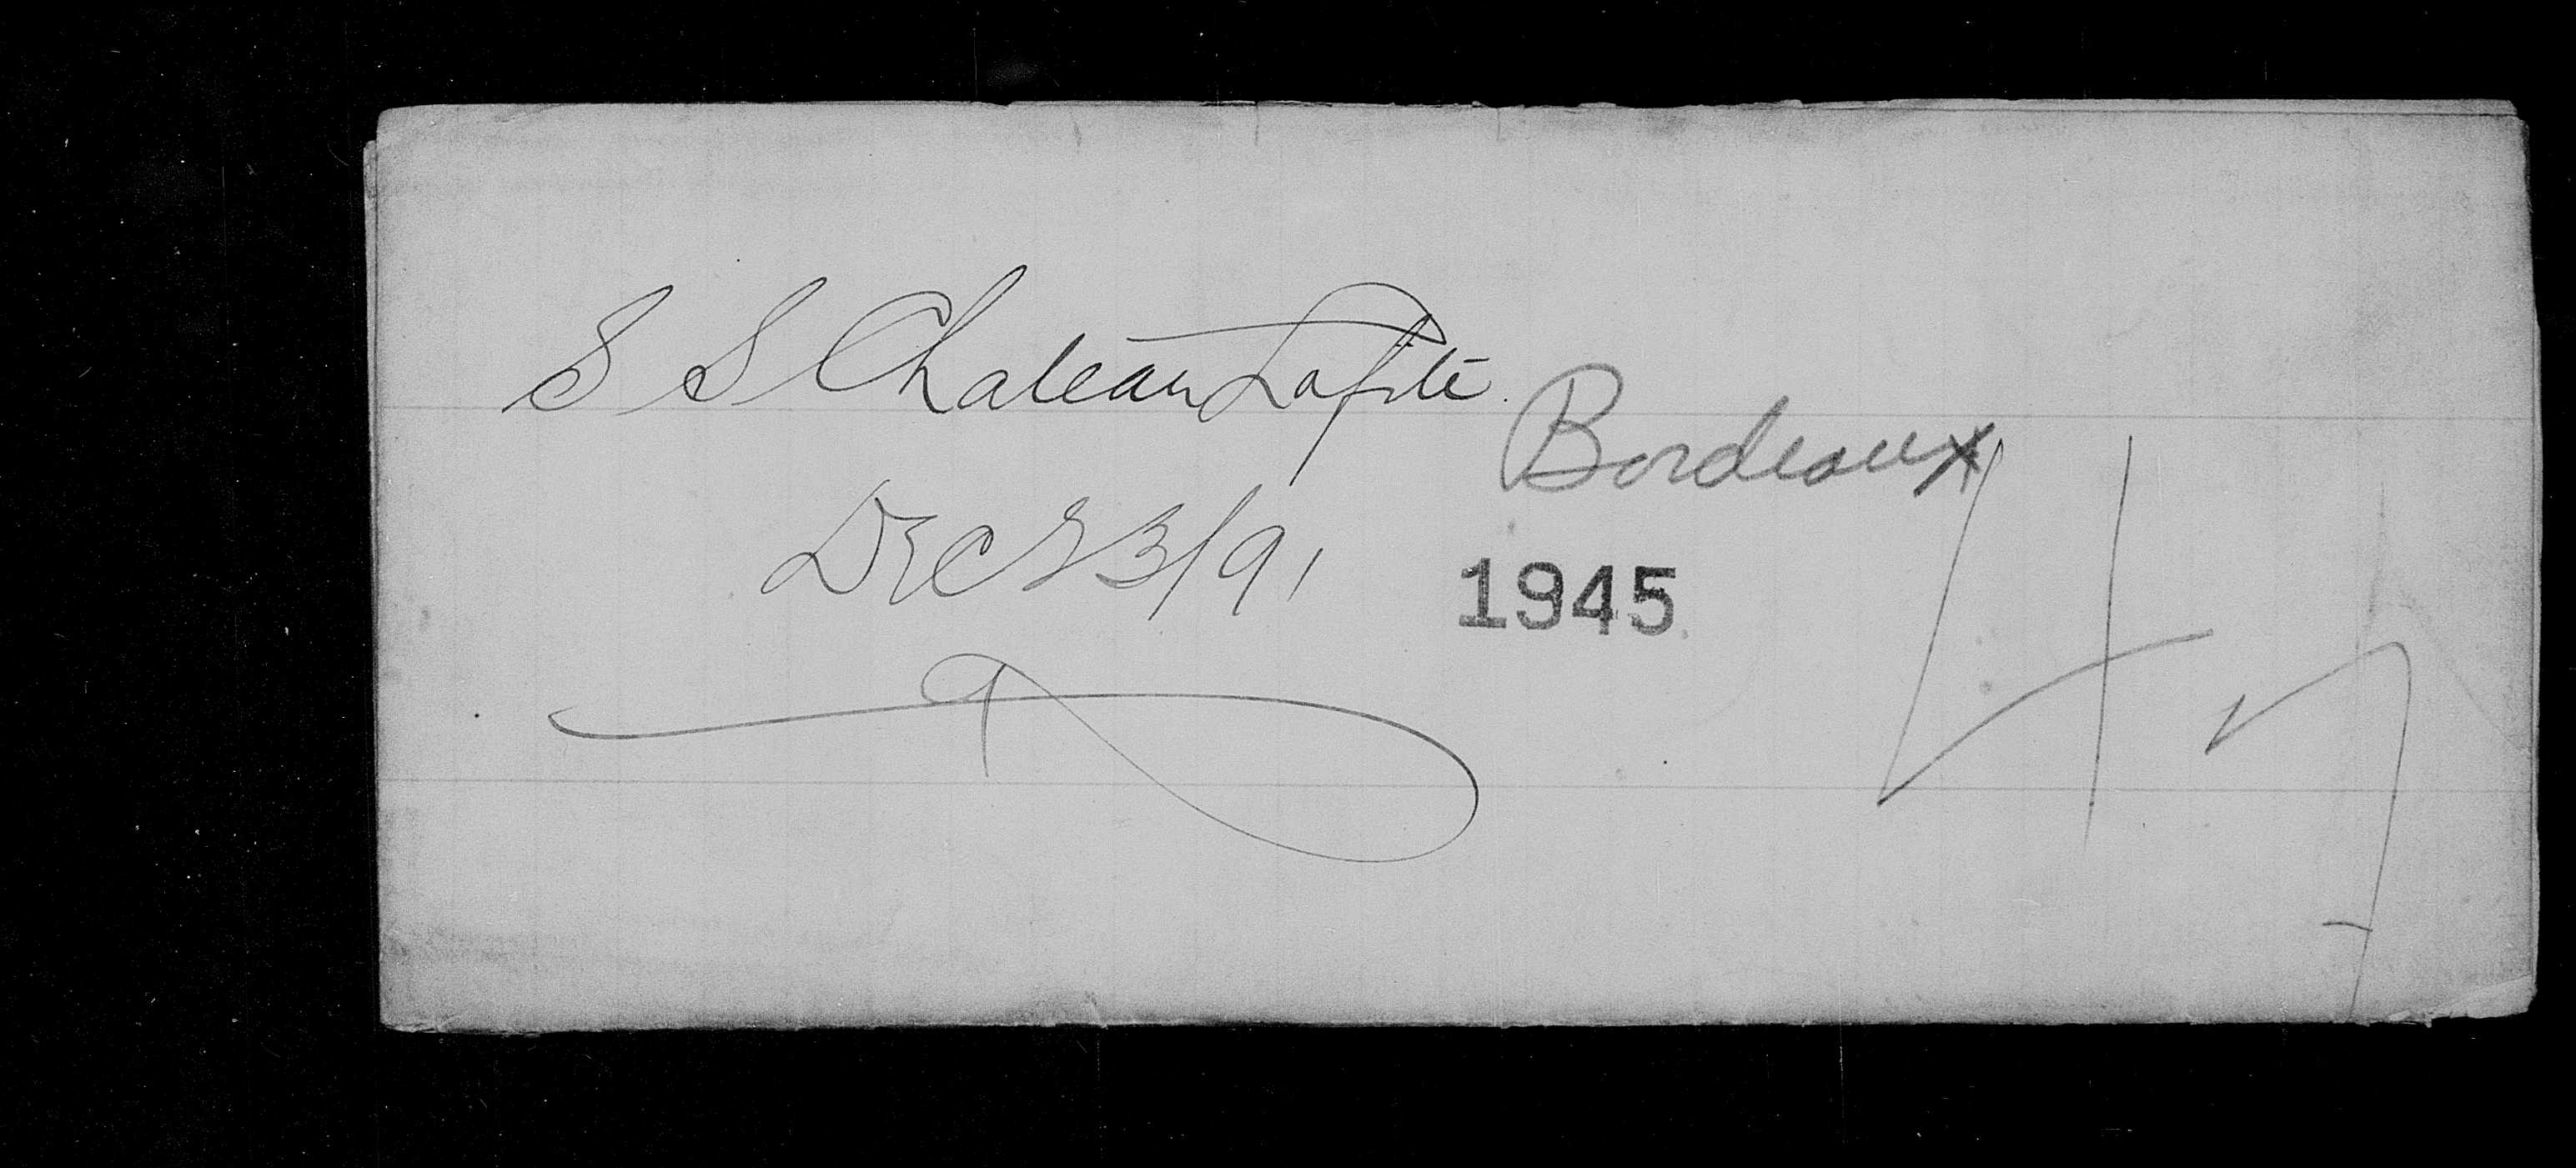 S S Chateau Lafite.
Bordeaux
Dec 23/91
1945
47